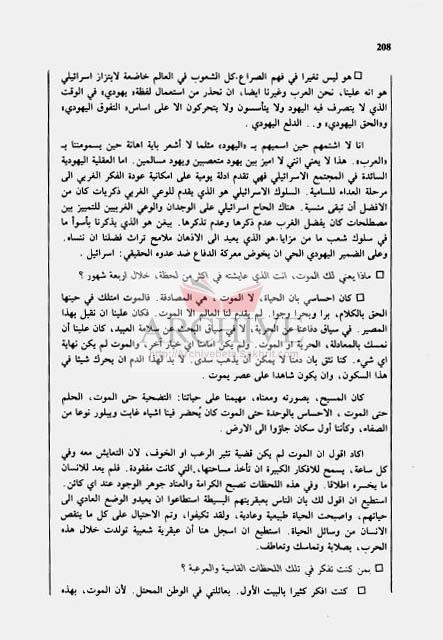 208
□ هو ليس تغيرا في فهم الصراع.كل الشعوب في العالم خاضعة لابتزاز اسرائيلي
هو انه علينا، نحن العرب وغيرنا ايضا، ان نحذر من استعمال لفظة» يهودي» في الوقت
الذي لا يتصرف فيه اليهود ولا يتأسسون ولا يتحركون الا على اساس« التفوق اليهودي»
و«الحق اليهودي» و.. الدلع اليهودي .
انا لا اشتمهم حين اسميهم بـ «اليهود» مثلما لا أشعر باية اهانة حين يسموننا بـ
«العرب». هذا لا يعني انني لا اميز بين يهود متعصبين ويهود مسالمين. اما العقلية اليهودية
السائدة في المجتمع الاسرائيلي فهي تقدم ادلة يومية على امكانية عودة الفكر الغربي الى
مرحلة العداء للسامية. السلوك الاسرائيلي هو الذي يقدم للوعي الغربي ذكريات كان من
الافضل أن تبقى منسية. هناك الحاح اسرائيلي على الوجدان والوعي الغربيين للتمييز بين
مصطلحات كان يفضل الغرب عدم ذكرها وعدم تذكرها. بيغن هو الذي يذكرنا بأسوأ ما
في سلوك شعب ما من مزايا،هو الذي يعيد الى الاذهان ملامح تراث فضلنا ان ننساه.
وعلى الضمير اليهودي الحي ان يخوض معركة الدفاع ضد عدوه الحقيقي: اسرائيل .
□ ماذا يعني لك الموت، انت الذي عايشته في اكثر من لحظة، خلال اربعة شهور ؟
□ كان احساسي بان الحياة، لا الموت، هي المصادفة. فالموت امتلك في حينها
الحق بالكلام، برا وبحرا وجوا. لم يقدم لنا العالم الا الموت. فكان علينا ان نقبل بهذا
المصير. في سياق دفاعنا عن الحرية، لا في سياق البحث عن سلامة العبيد، كان علينا أن
نمسك بالمعادلة، الحرية او الموت. ولم يكن امامنا اي خيار آخر. والموت لم يكن نهاية
اي شيء. كنا نثق بان دمنا لا يمكن ان يذهب سدى. لا بد لهذا الدم ان يحرك شيئا في
هذا السكون، وان يكون شاهدا على عصر يموت .
كان المسيح، بصورته ومعناه، مهيمنا على حياتنا: التضحية حتى الموت، الحلم
حتى الموت ، الاحساس بالوحدة حتى الموت كان يُحضر فينا اشياء غابت ويبلور نوعا من
الصفاء، وكأننا أول سكان جاؤوا الى الارض .
اكاد اقول ان الموت لم يكن قضية تثير الرعب او الخوف، لان التعايش معه وفي
كل ساعة، يسمح للافكار الكبيرة ان تأخذ مساحتها،التي كانت مفقودة. فلم يعد للانسان
ما يخسره اطلاقا. وفي هذه اللحظات تصبح الكرامة والعناد جوهر الوجود عند اي كائن.
استطيع ان اقول لك بان الناس بعبقريتهم البسيطة استطاعوا ان يعيدو الوضع العادي الى
حياتهم، واصبحت الحياة طبيعية وعادية، ولقد تكيفوا، وتم الاحتيال على كل ما ينقص
الانسان من وسائل الحياة. استطيع ان اسجل هنا أن عبقرية شعبية تولدت خلال هذه
الحرب، بصلابة وتماسك وتعاطف.
□ بمن كنت تفكر في تلك اللحظات القاسية والمرعبة ؟
□ كنت افكر كثيرا بالبيت الأول. بعائلتي في الوطن المحتل. لأن الموت، بهذه
ARCHIVE